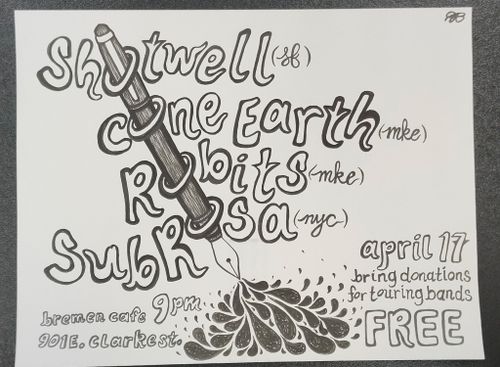 Shotwell (sf)
Cone Earth (mke)
Robits (mke)
SubRosa (nyc)
april 17
bring donations
for touring bands
FREE
bremen cafe 9pm
901 E. Clarke st.